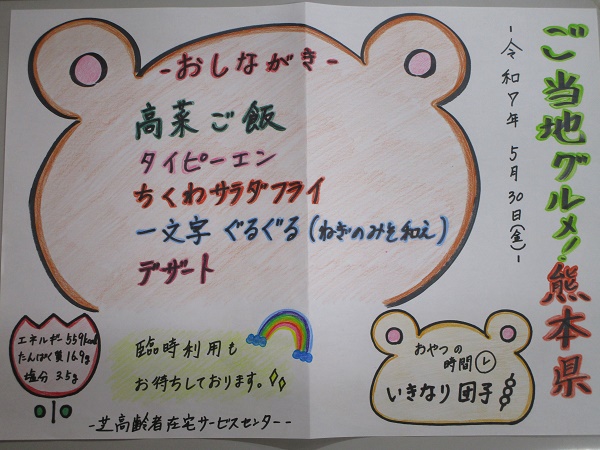 ご当地グルメ!熊本県
-令和7年 5月30日(金)-
-おしながき-
高菜ご飯
タイピーエン
ちくわサラダフライ
一文字 ぐるぐる(ねぎのみそ和え)
デザート
エネルギー559kcal
たんぱく質16.9g
塩分 3.5g
臨時利用も
お待ちしております。
おやつの
時間
いきなり団子
-芝高齢者在宅サービスセンター-